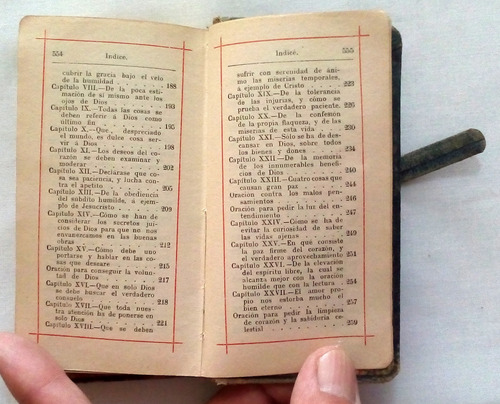 554
Indice.
cubrir la gracia bajo el velo
de la humildad . . . . . 188
Capítulo VIII.—De la poca esti-
mación de sí mismo ante los
ojos de Dios . . . . . 193
Capítulo IX.—Todas las cosas se
deben referir á Dios como
último fin . . . . . 195
Capítulo X.—Que, despreciado
el mundo, es dulce cosa ser-
vir á Dios . . . . . 198
Capítulo XI.—Los deseos del co-
razón se deben examinar y
moderar . . . . . 202
Capítulo XII.—Declárase que co-
sa sea paciencia, y lucha con-
tra el apetito . . . . . 205
Capítulo XIII.—De la obediencia
del súbdito humilde, á ejem-
plo de Jesucristo . . . . . 209
Capítulo XIV.—Cómo se han de
considerar los secretos jui-
cios de Dios para que no nos
envanezcamos en las buenas
obras . . . . . 212
Capítulo XV.—Cómo debe uno
portarse y hablar en las co-
sas que deseare . . . . . 215
Oración para conseguir la volun-
tad de Dios . . . . . 217
Capítulo XVI.—Que en solo Dios
se debe buscar el verdadero
consuelo . . . . . 218
Capítulo XVII.—Que toda nues-
tra atención ha de ponerse en
solo Dios . . . . . 221
Capítulo XVIII.—Que se deben
Indice.
555
sufrir con serenidad de áni-
mo las miserias temporales,
á ejemplo de Cristo . . . . 223
Capítulo XIX.—De la tolerancia
de las injurias, y cómo se
prueba el verdadero paciente. 226
Capítulo XX.—De la confesión
de la propia flaqueza, y de las
miserias de esta vida . . . . 230
Capítulo XXI.—Sólo se ha de des-
cansar en Dios, sobre todos
los bienes y dones . . . . . 234
Capítulo XXII.—De la memoria
de los innumerables benefi-
cios de Dios . . . . . 240
Capítulo XXIII.—Cuatro cosas que
causan gran paz . . . . . 244
Oración contra los malos pen-
samientos . . . . . 246
Oración para pedir la luz del en-
tendimiento . . . . . 247
Capítulo XXIV.—Cómo se ha de
evitar la curiosidad de saber
las vidas ajenas . . . . . 249
Capítulo XXV.—En qué consiste
la paz firme del corazón, y
el verdadero aprovechamiento 251
Capítulo XXVI.—De la elevación
del espíritu libre, la cual se
alcanza mejor con la oración
humilde que con la lectura . 254
Capítulo XXVII.—El amor pro-
pio nos estorba mucho el
bien eterno . . . . . 257
Oración para pedir la limpieza
de corazón y la sabiduría ce-
lestial . . . . . 259